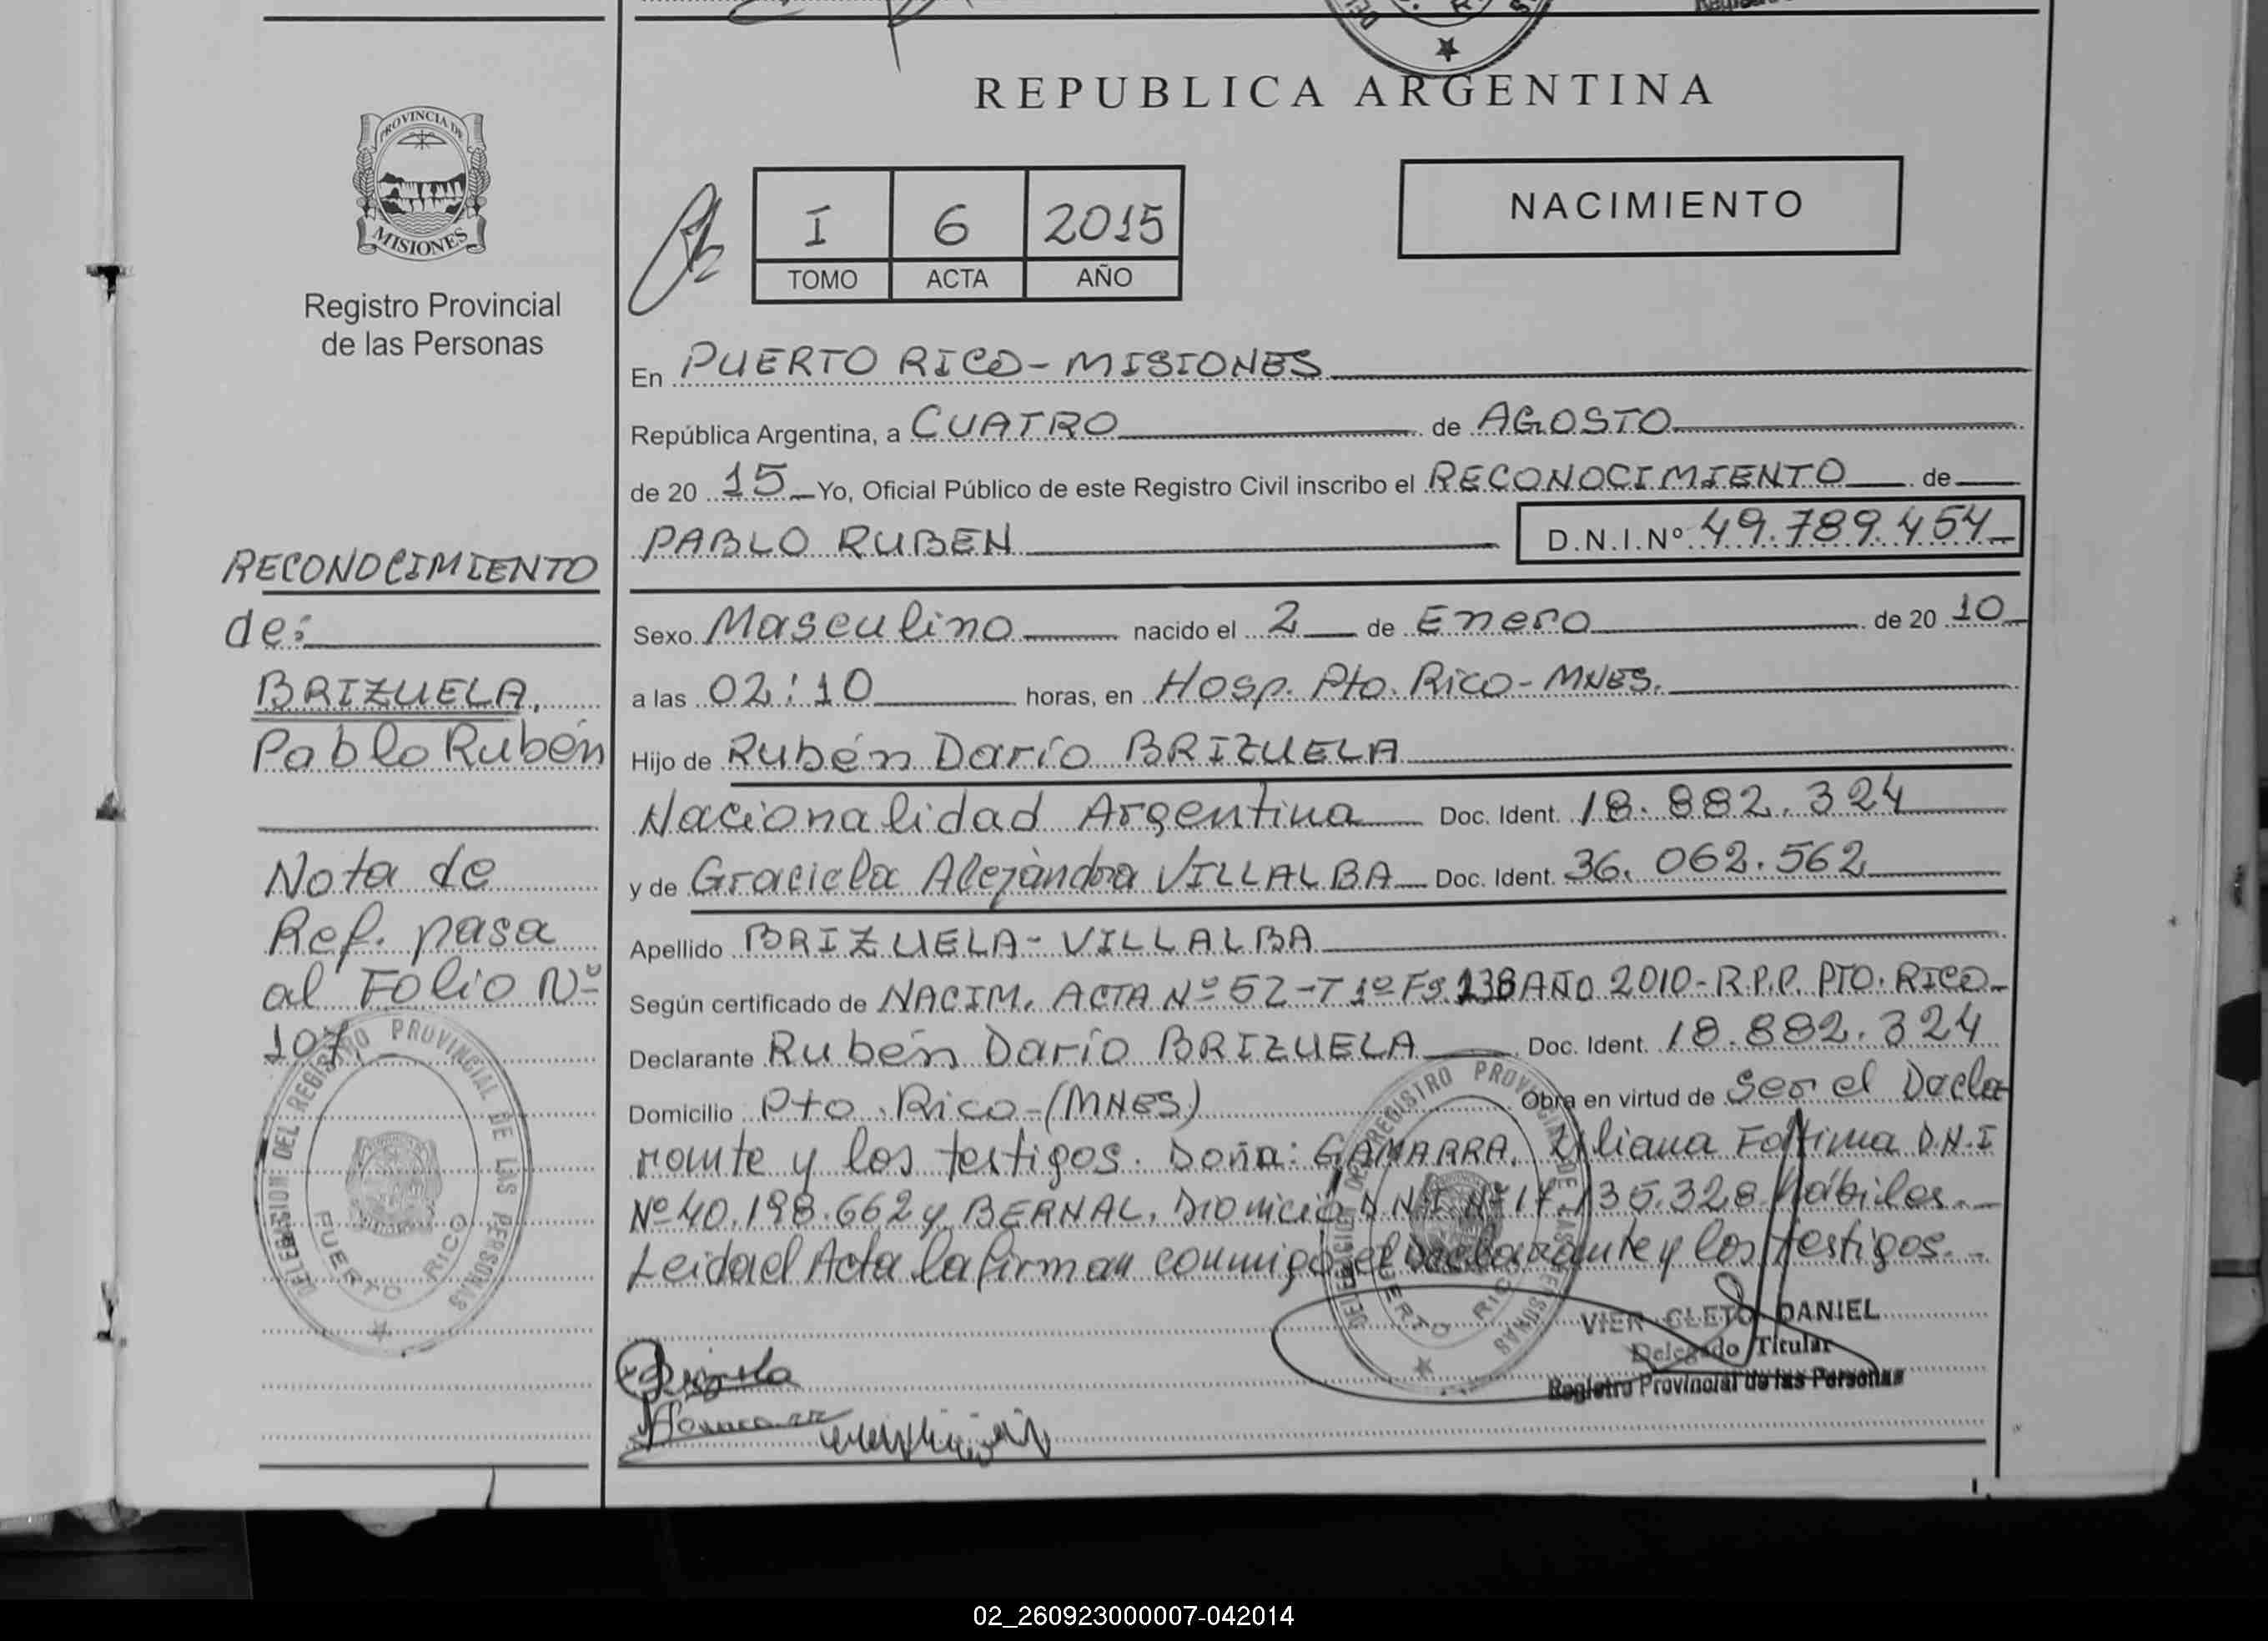 REPUBLICA ARGENTINA
PROVINCIA DE
MISIONES
Registro Provincial
de las Personas
I 6 2015
TOMO ACTA AÑO
NACIMIENTO
En PUERTO RICO - MISIONES
República Argentina, a CUATRO de AGOSTO
de 20 15 Yo, Oficial Público de este Registro Civil inscribo el RECONOCIMIENTO de
PABLO RUBEN D.N.I.Nº 49.789.454
Sexo Masculino nacido el 2 de Enero de 20 10
a las 02:10 horas, en Hosp. Pto. Rico - MNES.
Hijo de Rubén Darío BRIZUELA
Nacionalidad Argentina Doc. Ident. 18.882.324
y de Graciela Alejandra VILLALBA Doc. Ident. 36.062.562
Apellido BRIZUELA - VILLALBA
Según certificado de NACIM. ACTA Nº 52 - T 1º Fº 138 AÑO 2010 - R.P.P. PTO. RICO
Declarante Rubén Darío BRIZUELA Doc. Ident. 18.882.324
Domicilio Pto. Rico - (MNES) Obra en virtud de ser el Decla
rante y los testigos. Doña: GAMARRA, Liliana Fátima D.N.I
Nº 40.198.662 y BERNAL, Dionicio D.N.I Nº 17.135.328 hábiles.
Leida el Acta la firman conmigo el declarante y los testigos.
VIER CLETO DANIEL
Delegado Titular
Registro Provincial de las Personas
RECONOCIMIENTO
de:
BRIZUELA,
Pablo Rubén
Nota de
Ref. pasa
al Folio Nº
107.
DELEGACION DEL REGISTRO PROVINCIAL DE LAS PERSONAS
PUERTO RICO
DELEGACION DEL REGISTRO PROVINCIAL DE LAS PERSONAS
PUERTO RICO
02_260923000007-042014